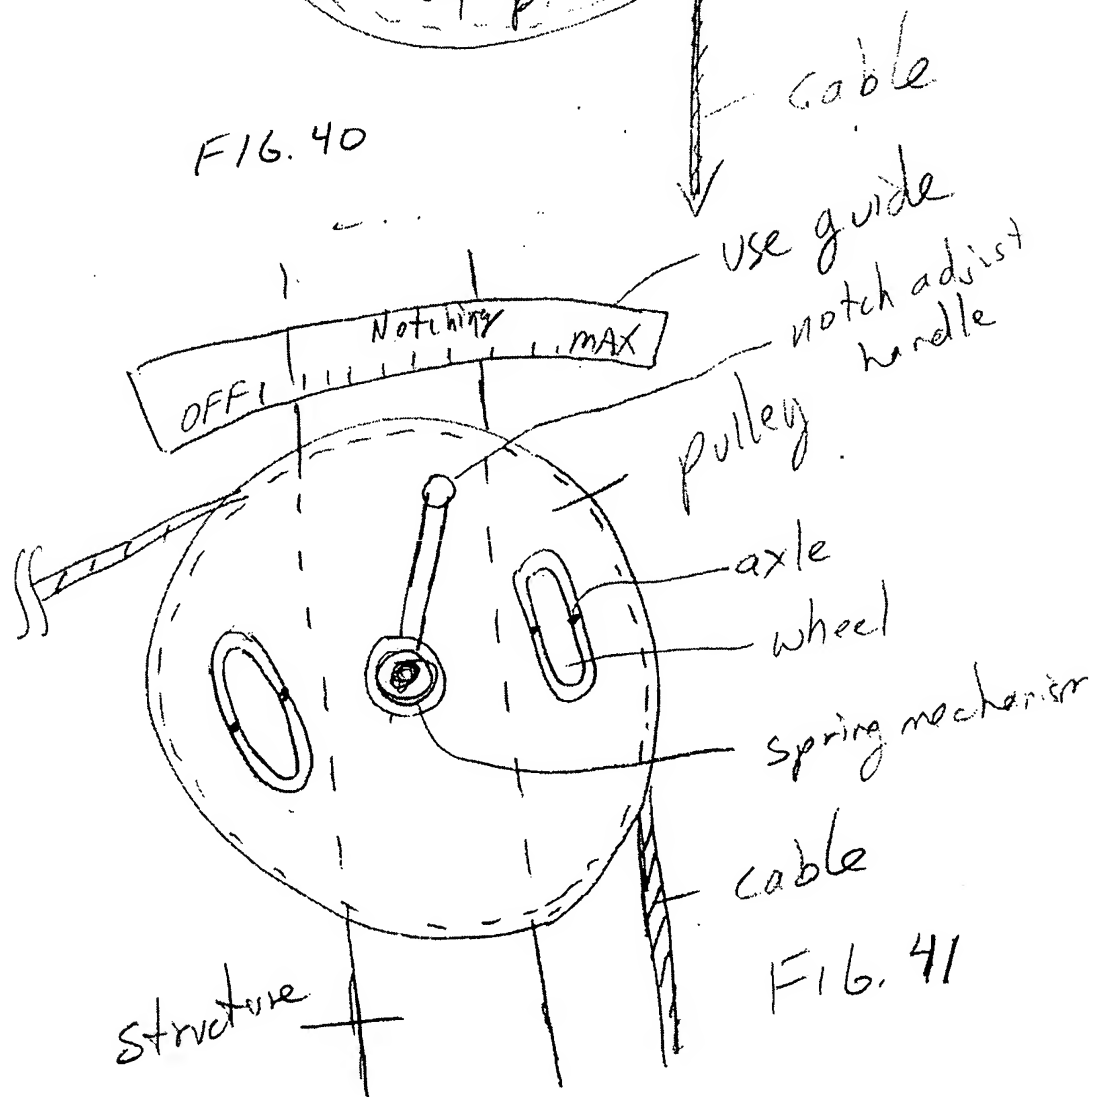 cable
FIG. 40
use guide
notch adjist
handle
Notching
OFF
MAX
pulley
axle
wheel
spring mechanism
cable
FIG. 41
structure